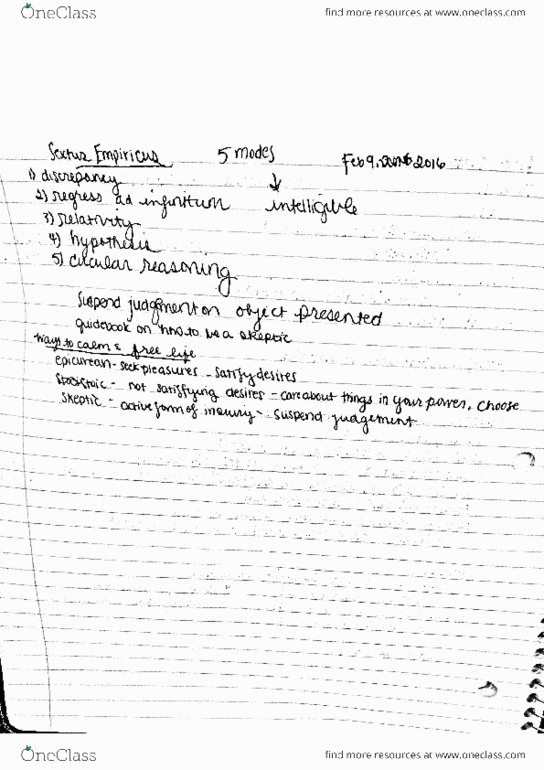 OneClass
find more resources at www.oneclass.com
Sextus Empiricus 5 modes Feb 9, 2016
1) discrepancy
2) regress ad infinitum intelligible
3) relativity
4) hypothesis
5) circular reasoning
Suspend judgement on object presented
guidebook on how to be a skeptic
Ways to calm & free life
epicurean - seek pleasures - satisfy desires
- not satisfying desires - care about things in your power, choose
Skeptic - active form of inquiry - suspend judgement
OneClass
find more resources at www.oneclass.com